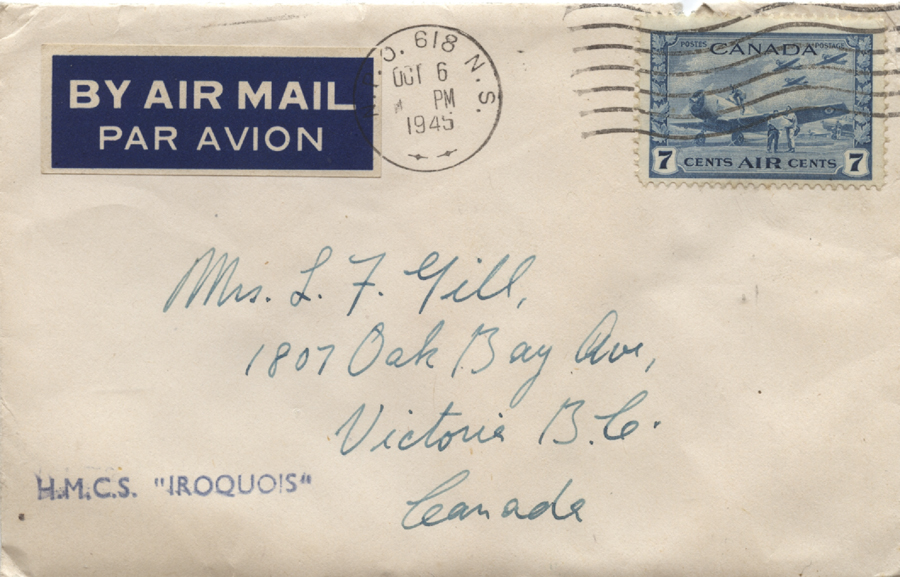 BY AIR MAIL
PAR AVION
O. 618 N.S.
OCT 6
PM
1945
POSTES CANADA POSTAGE
7 CENTS AIR CENTS 7
Mrs. L. F. Gill,
1807 Oak Bay Ave,
Victoria B.C.
Canada
H.M.C.S. "IROQUOIS"